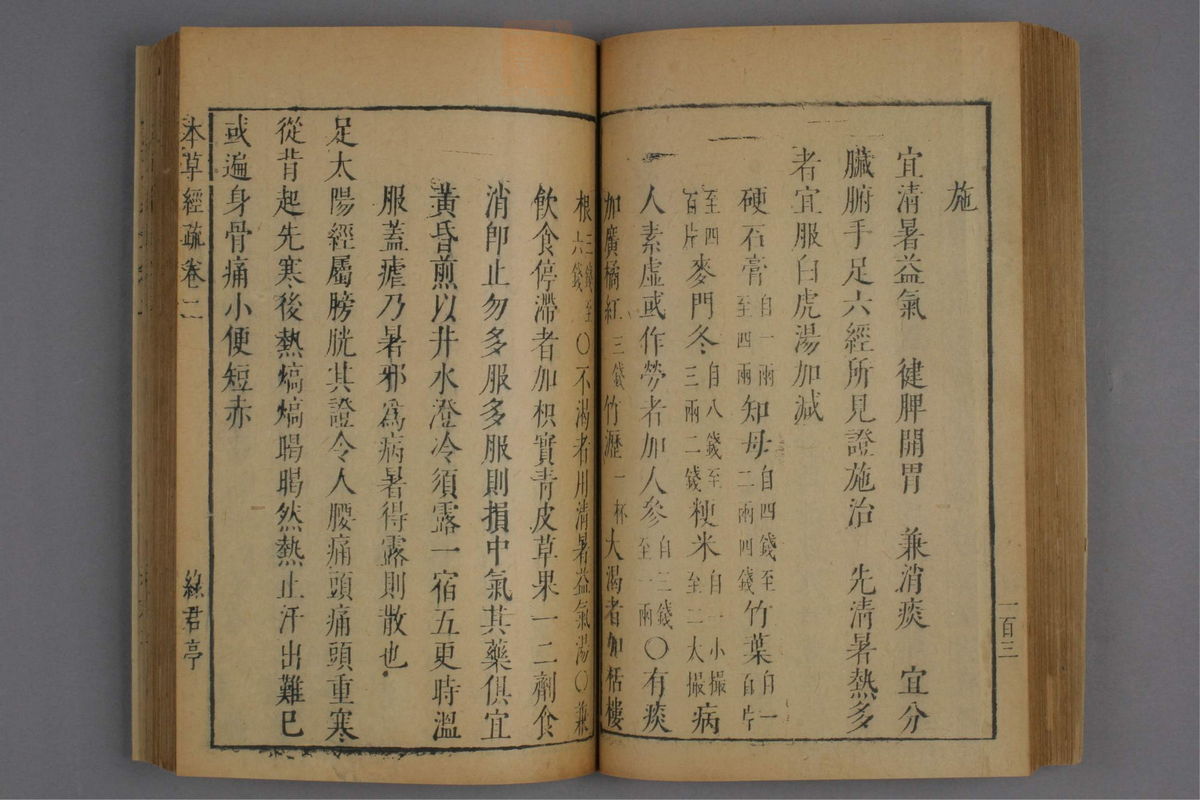 一百三
施
宜清暑益氣　健脾開胃　兼消痰　宜分
臟腑手足六經所見證施治　先清暑熱多
者宜服白虎湯加減
硬石膏自一兩至四兩知母自四錢至二兩四錢竹葉自一百片
至四百片麥門冬自八錢至三兩二錢粳米自一小撮至二大撮病
人素虛或作勞者加人參自三錢至一兩〇有痰
加廣橘紅三錢竹瀝一杯大渴者加栝樓
根三錢至六錢〇不渴者用清暑益氣湯〇兼
飲食停滯者加枳實青皮草果一二劑食
消即止勿多服多服則損中氣其藥俱宜
黃昏煎以井水澄冷須露一宿五更時溫
服蓋瘧乃暑邪爲病暑得露則散也
足太陽經屬膀胱其證令人腰痛頭痛頭重寒
從昔起先寒後熱熇熇暍暍然熱止汗出難已
或遍身骨痛小便短赤
本草經疏卷二
綠君亭